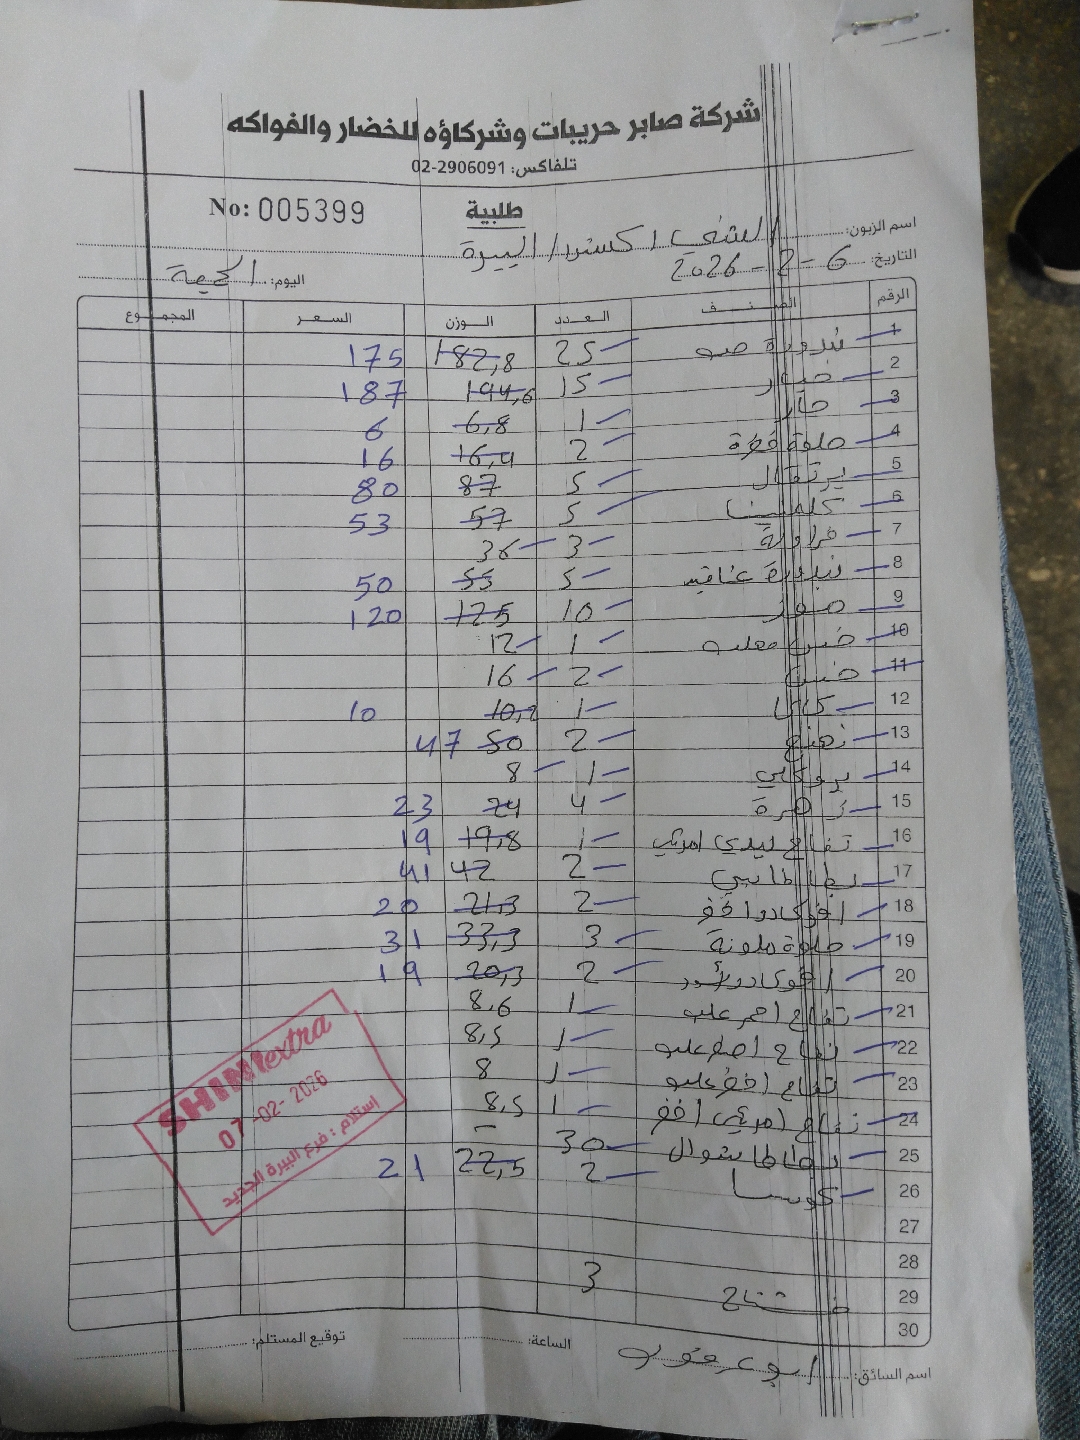 شركة صابر حريبات وشركاؤه للخضار والفواكه
تلفاكس: 02-2906091
No: 005399
طلبية
اسم الزبون: الشني اكسترا / البيرة
التاريخ: 6-2-2026
اليوم: الجمعة
الرقم الصنف العدد الوزن السعر المجموع
1 بندورة حب 25 182,8 175
2 خيار 15 194,6 187
3 حار 1 6,8 6
4 حلوة خضرة 2 16,4 16
5 برتقال 5 87 80
6 كلمنتينا 5 57 53
7 فراولة 3 36
8 بندورة عناقيد 5 55 50
9 موز 10 125 120
10 خس معلب 1 12
11 خس 2 16
12 كاكا 1 10,2 10
13 نعنع 2 50 47
14 بروكلي 1 8
15 زهرة 4 24 23
16 تفاح ليدي امريكي 1 19,8 19
17 بطاطا بيبي 2 42 41
18 افوكادو اخضر 2 21,3 20
19 حلوة ملونة 3 33,3 31
20 افوكادو أسود 2 20,3 19
21 تفاح احمر علب 1 8,6
22 تفاح اصفر علب 1 8,5
23 تفاح اخضر علب 1 8
24 تفاح امريكي اخضر 1 8,5
25 بطاطا شوال 30 -
26 كوسا 2 22,5 21
27
28
29 مشتاح 3
30
SHINI extra
07-02-2026
استلام: فرع البيرة الجديد
توقيع المستلم:
الساعة:
اسم السائق: ابو عرقوب